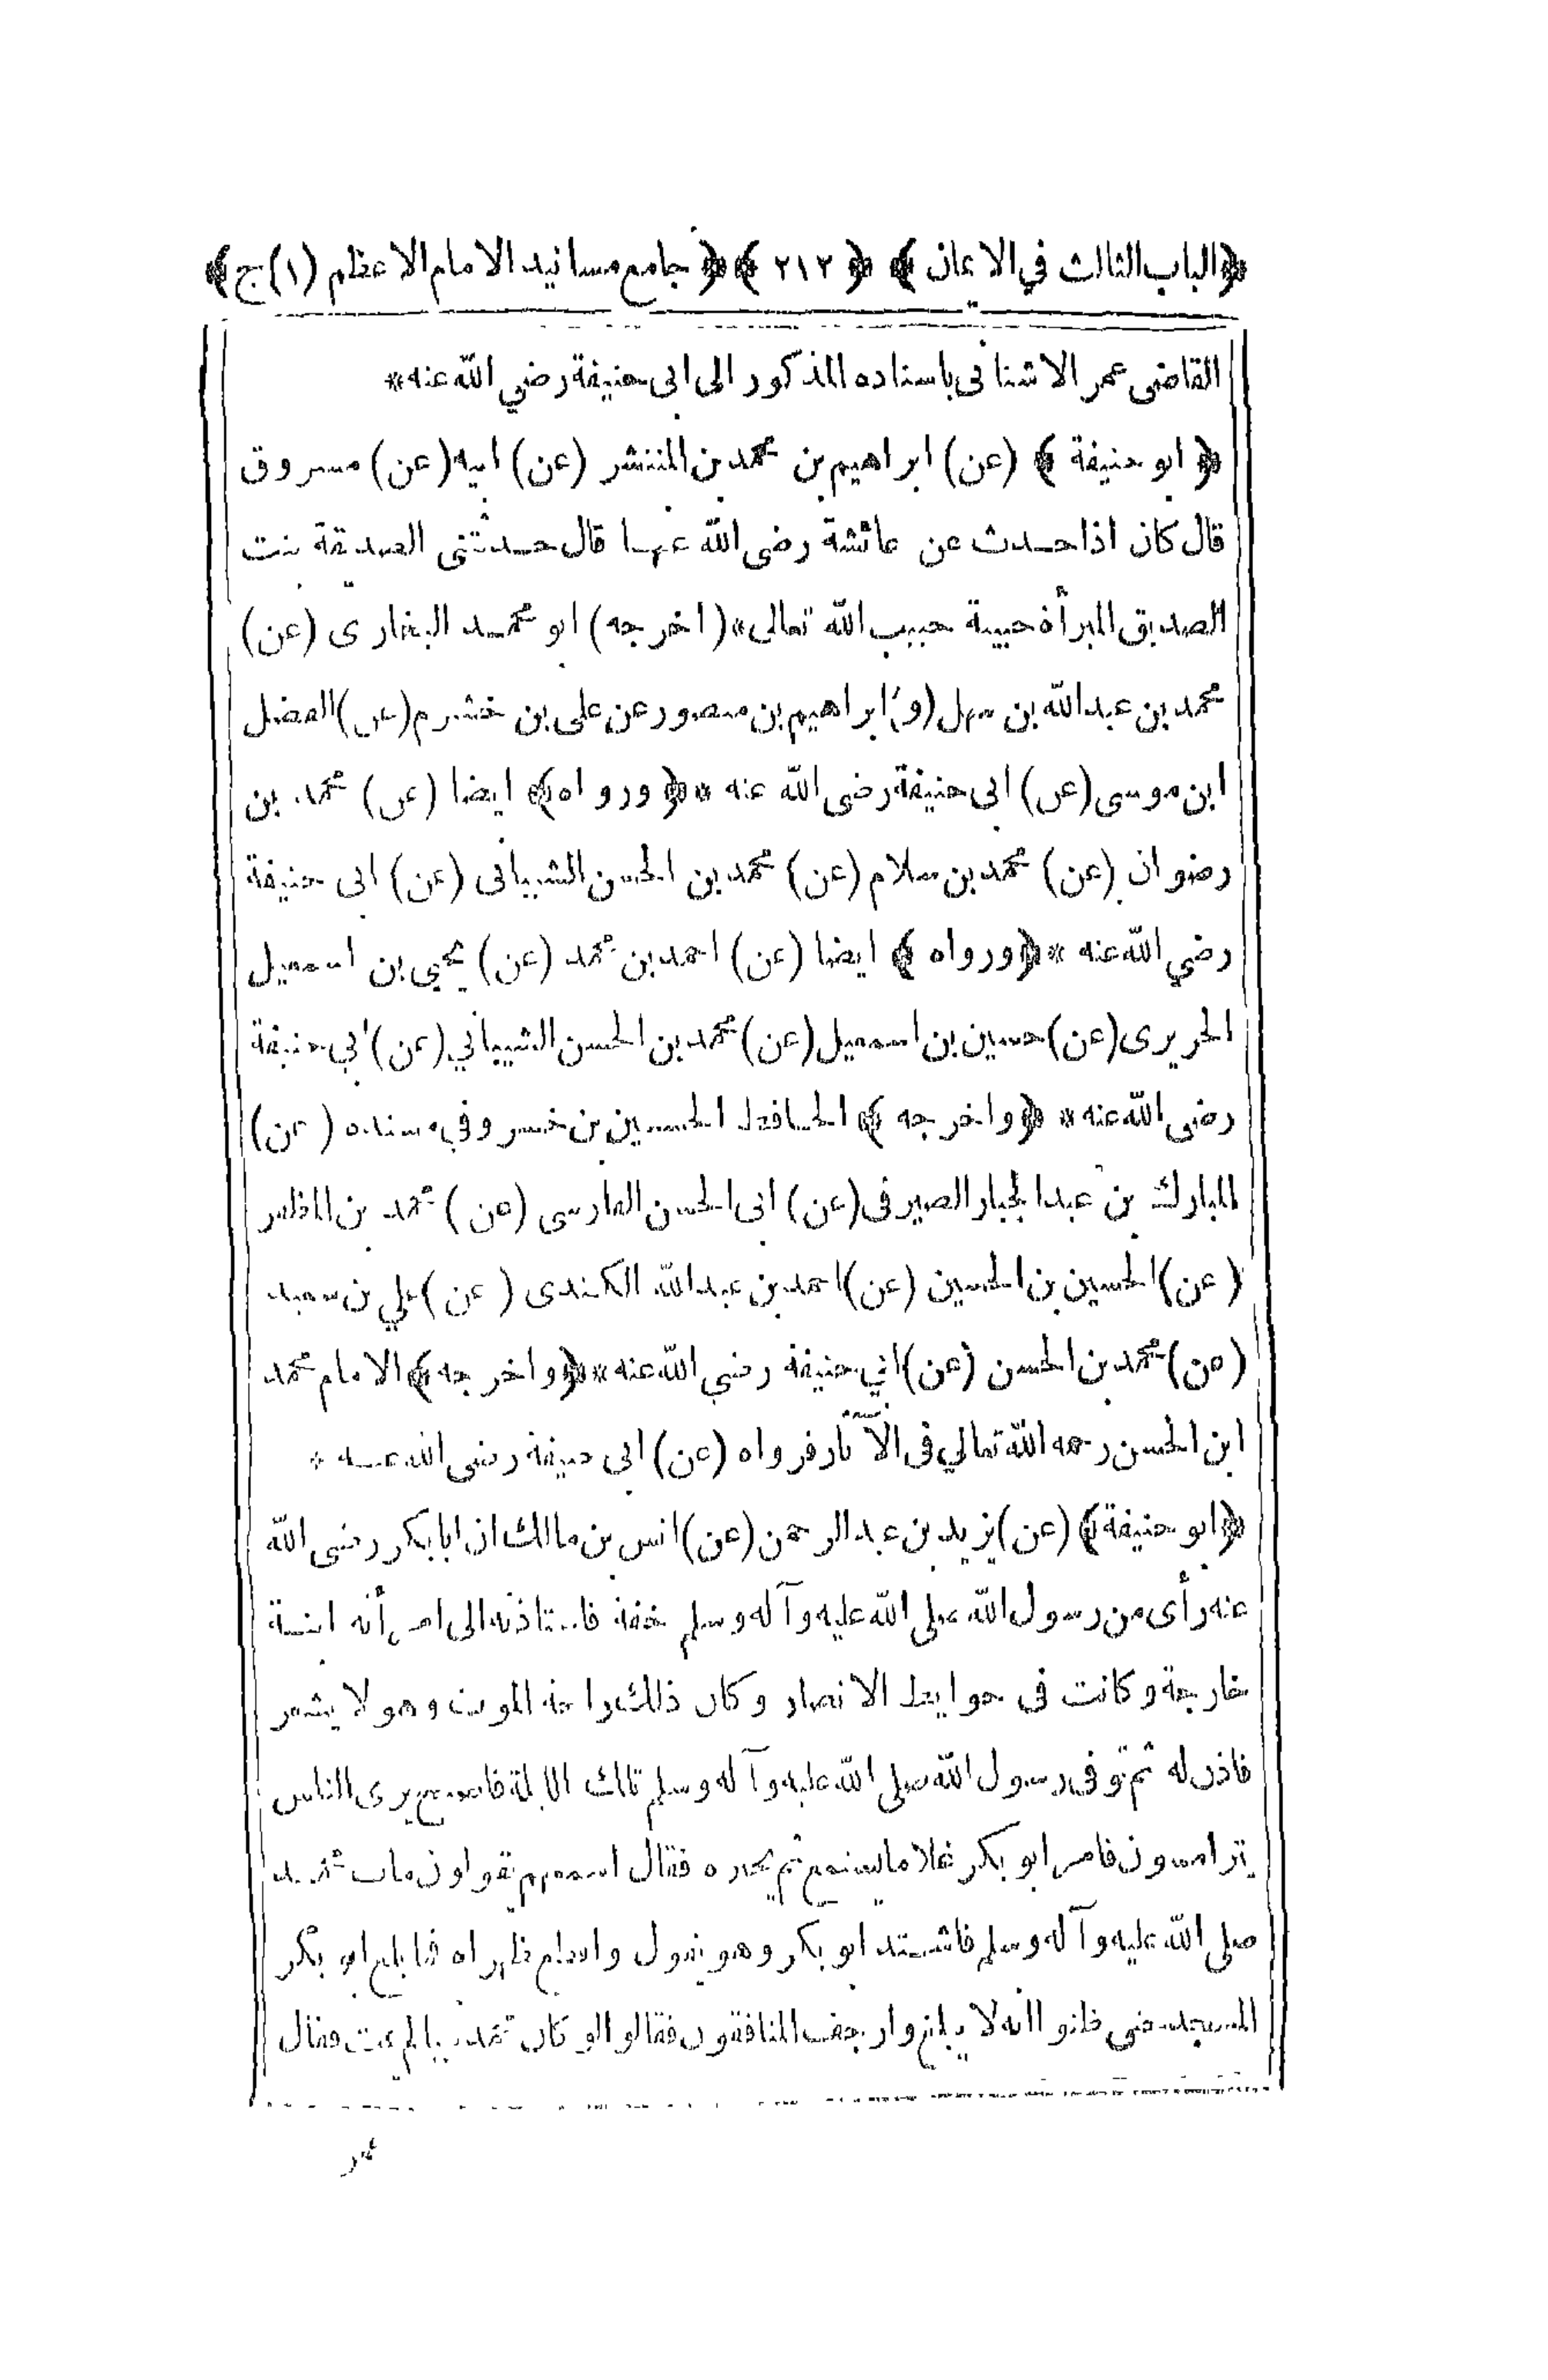 ﴿الباب الثالث في الايمان﴾ ﴿٢١٢﴾ ﴿جامع مسانيد الامام الاعظم (١) ج﴾
القاضى عمر الاشنانى باسناده المذكور الى ابى حنيفة رضي الله عنه*
﴿ابو حنيفة﴾ (عن) ابراهيم بن محمد بن المنتشر (عن) ابيه (عن) مسروق
قال كان اذا حدث عن عائشة رضى الله عنها قال حدثتنى الصديقة بنت
الصديق المبرأة حبيبة حبيب الله تعالى* (اخرجه) ابو محمد البخارى (عن)
محمد بن عبدالله بن سهل (و) ابراهيم بن منصور عن على بن خشرم (عن) الفضل
ابن موسى (عن) ابى حنيفة رضى الله عنه *﴿ورواه﴾ ايضا (عن) محمد بن
رضوان (عن) محمد بن سلام (عن) محمد بن الحسن الشيبانى (عن) ابى حنيفة
رضي الله عنه *﴿ورواه﴾ ايضا (عن) احمد بن محمد (عن) يحيى بن اسمعيل
الحريرى (عن) حسين بن اسمعيل (عن) محمد بن الحسن الشيباني (عن) ابي حنيفة
رضى الله عنه* ﴿واخرجه﴾ الحافظ الحسين بن خسرو في مسنده (عن)
المبارك بن عبدالجبار الصيرفى (عن) ابى الحسن الفارسى (عن) محمد بن المظفر
(عن) الحسين بن الحسين (عن) احمد بن عبدالله الكندى (عن) علي بن معبد
(عن) محمد بن الحسن (عن) ابي حنيفة رضي الله عنه*﴿واخرجه﴾ الامام محمد
ابن الحسن رحمه الله تعالي فى الآثار فرواه (عن) ابى حنيفة رضى الله عنه *
﴿ابو حنيفة﴾ (عن) يزيد بن عبدالرحمن (عن) انس بن مالك ان ابابكر رضى الله
عنه رأى من رسول الله صلى الله عليه وآله وسلم خفة فاستاذنه الى امرأته ابنة
خارجة وكانت فى حوايط الانصار وكان ذلك راحة الموت وهو لا يشعر
فاذن له ثم توفى رسول الله صلى الله عليه وآله وسلم تلك الليلة فاصبح يرى الناس
يترامسون فامر ابو بكر غلاما يستمع ثم يخبره فقال اسمعهم يقولون مات محمد
صلى الله عليه وآله وسلم فاشتد ابو بكر وهو يقول واقطع ظهراه فما بلغ ابو بكر
المسجد حتى ظنوا انه لا يبلغ وارجف المنافقون فقالوا لو كان محمد نبيا لم يمت فقال
عمر